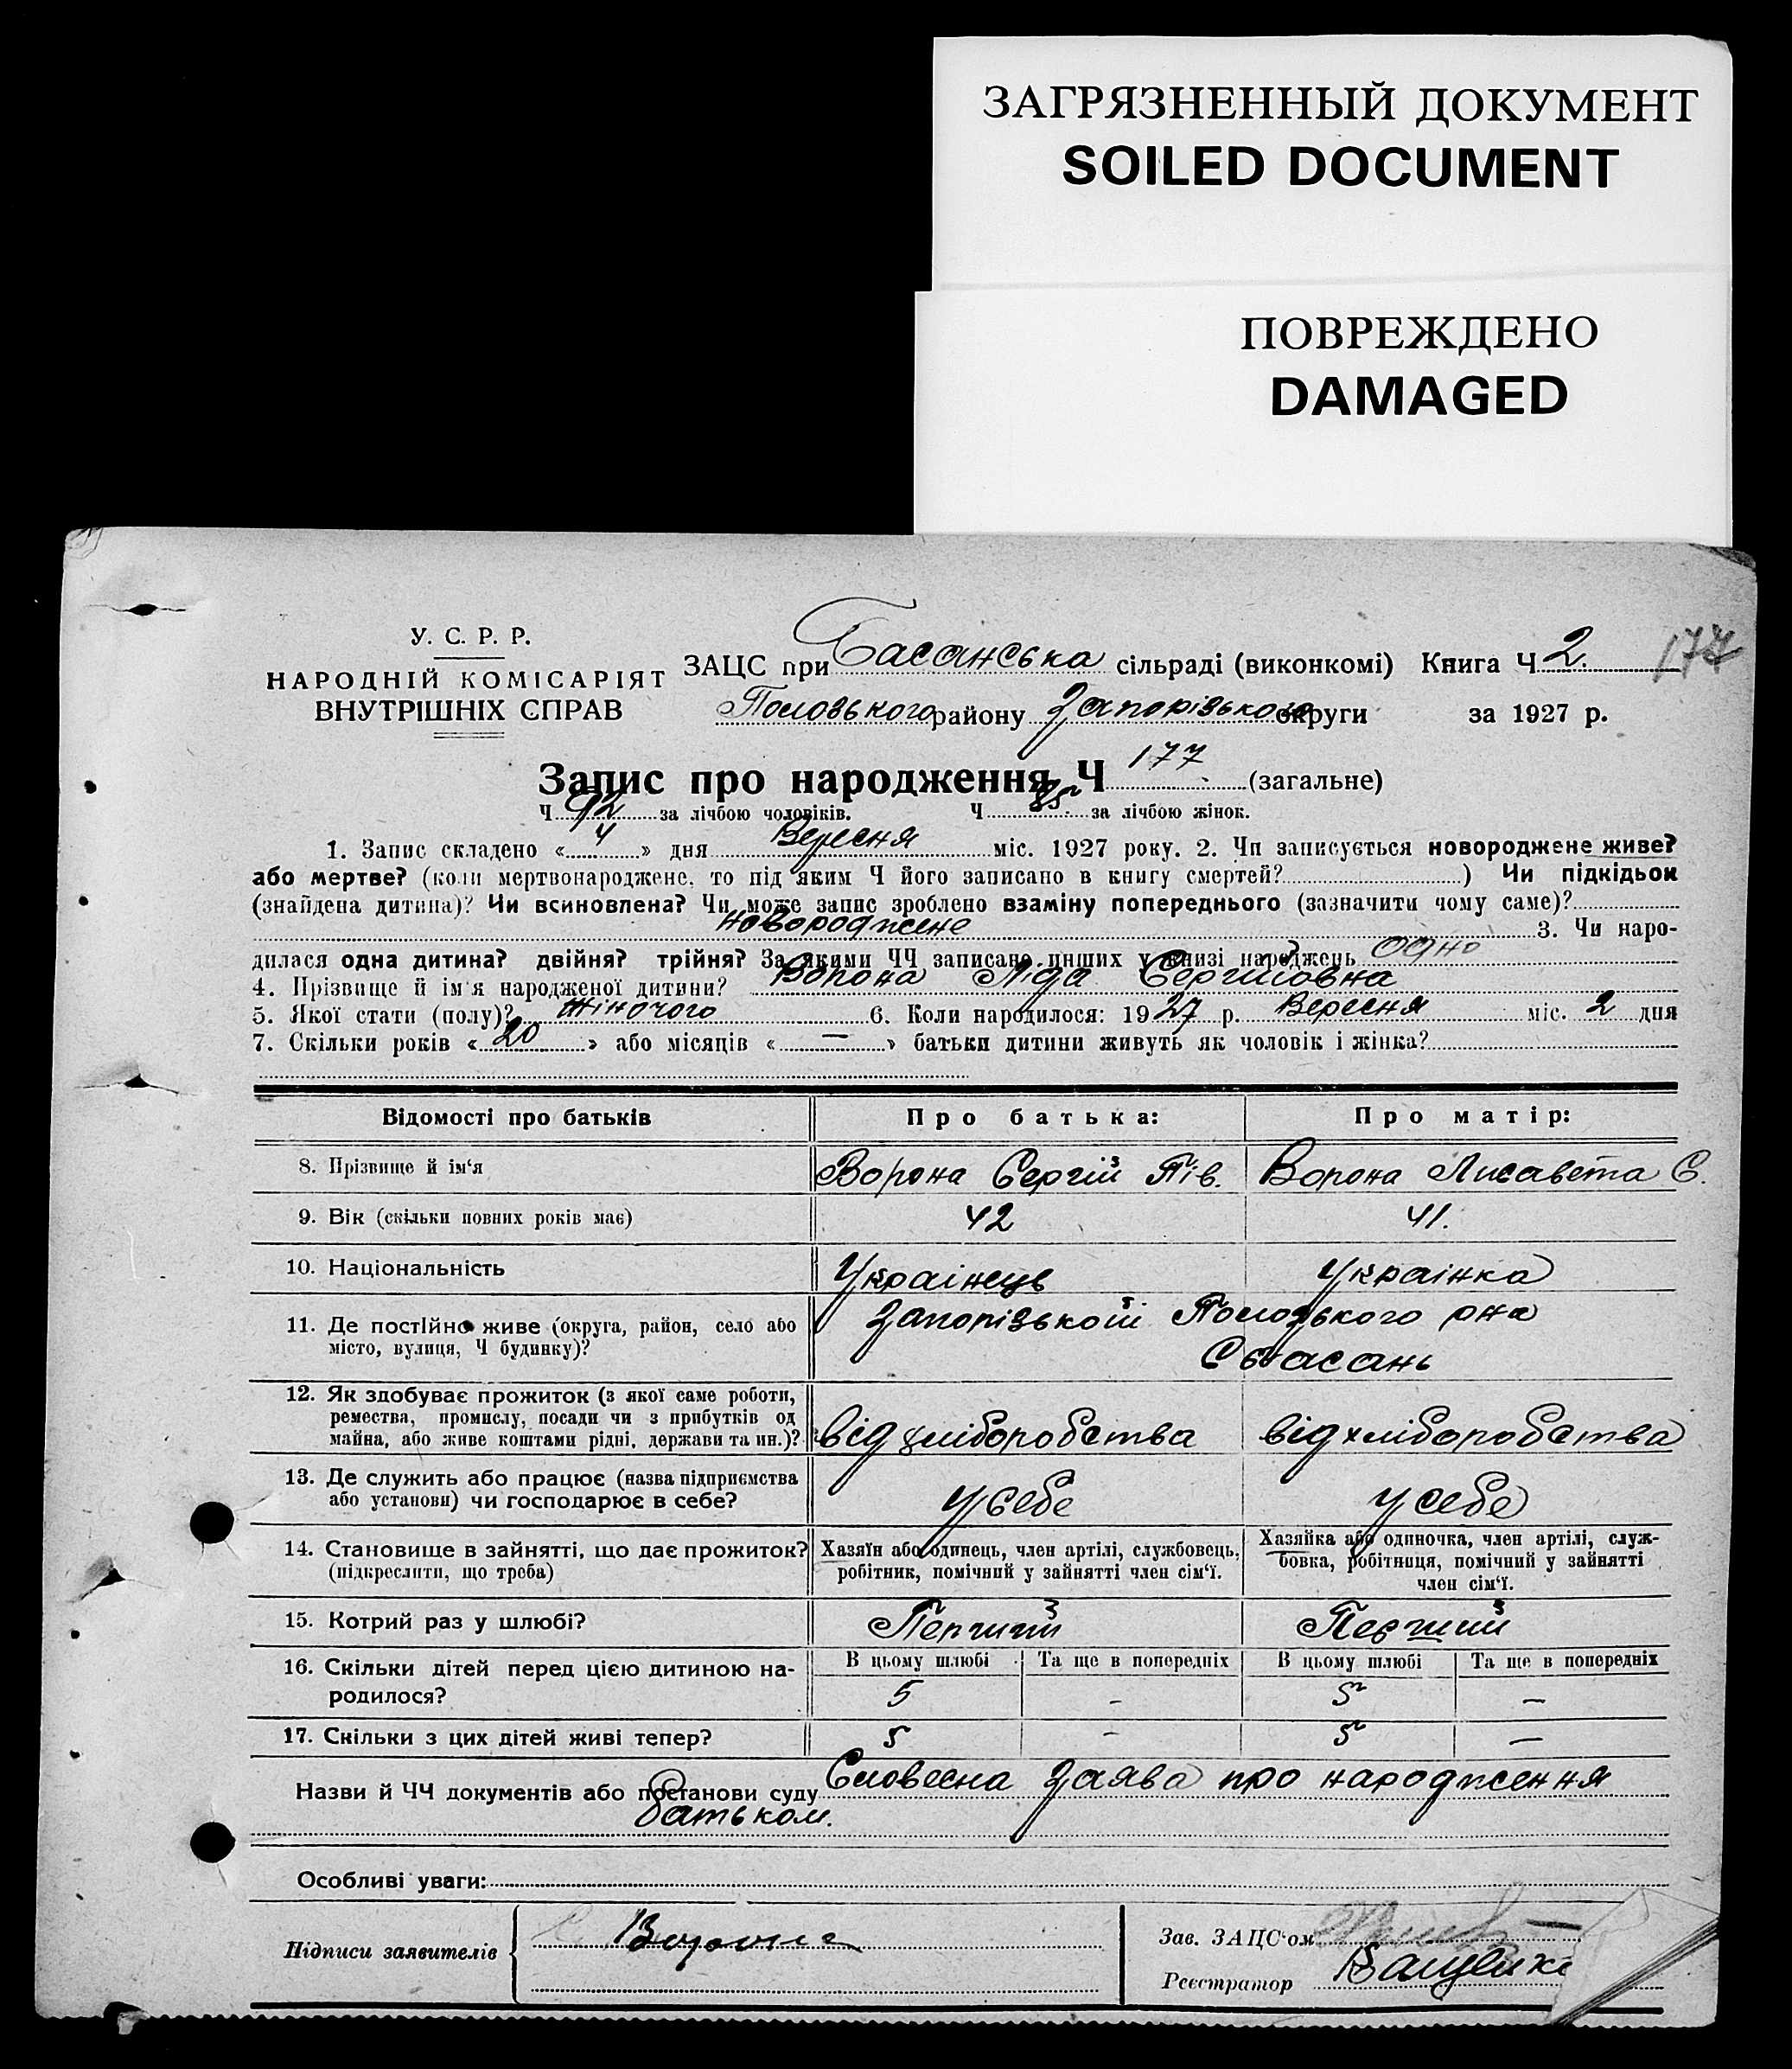 ЗАГРЯЗНЕННЫЙ ДОКУМЕНТ
SOILED DOCUMENT
ПОВРЕЖДЕНО
DAMAGED
У. С. Р. Р.
НАРОДНІЙ КОМІСАРІЯТ
ВНУТРІШНІХ СПРАВ
ЗАЦС при Басанська сільраді (виконкомі) Книга Ч 2. 177
Пологського району Запорізької округи за 1927 р.
Запис про народження Ч 177 (загальне)
Ч 92 за лічбою чоловіків. Ч 85 за лічбою жінок.
1. Запис складено « 4 » дня Вересня міс. 1927 року. 2. Чи записується новороджене живе?
або мертве? (коли мертвонароджене, то під яким Ч його записано в книгу смертей? ) Чи підкідьок
(знайдена дитина)? Чи всиновлена? Чи може запис зроблено взаміну попереднього (зазначити чому саме)?
новороджене 3. Чи наро-
дилася одна дитина? двійня? трійня? За якими ЧЧ записано инших у книзі народжень одно
4. Прізвище й ім'я народженої дитини? Ворона Ліда Сергіївна
5. Якої стати (полу)? жіночого 6. Коли народилося: 1927 р. Вересня міс. 2 дня
7. Скільки років « 20 » або місяців « — » батьки дитини живуть як чоловік і жінка?
Відомості про батьків Про батька: Про матір:
8. Прізвище й ім‘я Ворона Сергій Пів. Ворона Лисавета Є.
9. Вік (скільки повних років має) 42 41.
10. Національність Українець Українка
11. Де постійно живе (округа, район, село або
місто, вулиця, Ч будинку)?
Запорізької Пологського р-на
С Басань
12. Як здобуває прожиток (з якої саме роботи,
ремества, промислу, посади чи з прибутків од
майна, або живе коштами рідні, держави та ин.)? від хліборобства від хліборобства
13. Де служить або працює (назва підприємства
або установи) чи господарює в себе? у себе у себе
14. Становище в зайнятті, що дає прожиток?
(підкреслити, що треба)
Хазяїн або одинець, член артілі, службовець,
робітник, помічний у зайнятті член сім‘ї.
Хазяйка або одиночка, член артілі, служ-
бовка, робітниця, помічний у зайнятті
член сім‘ї.
15. Котрий раз у шлюбі? Перший Перший
16. Скільки дітей перед цією дитиною на-
родилося?
В цьому шлюбі Та ще в попередніх В цьому шлюбі Та ще в попередніх
5 - 5 —
17. Скільки з цих дітей живі тепер? 5 - 5 —
Назви й ЧЧ документів або постанови суду Словесна заява про народження
батьком.
Особливі уваги:
Підписи заявителів Ворона
Зав. ЗАЦС‘ом
Реєстратор